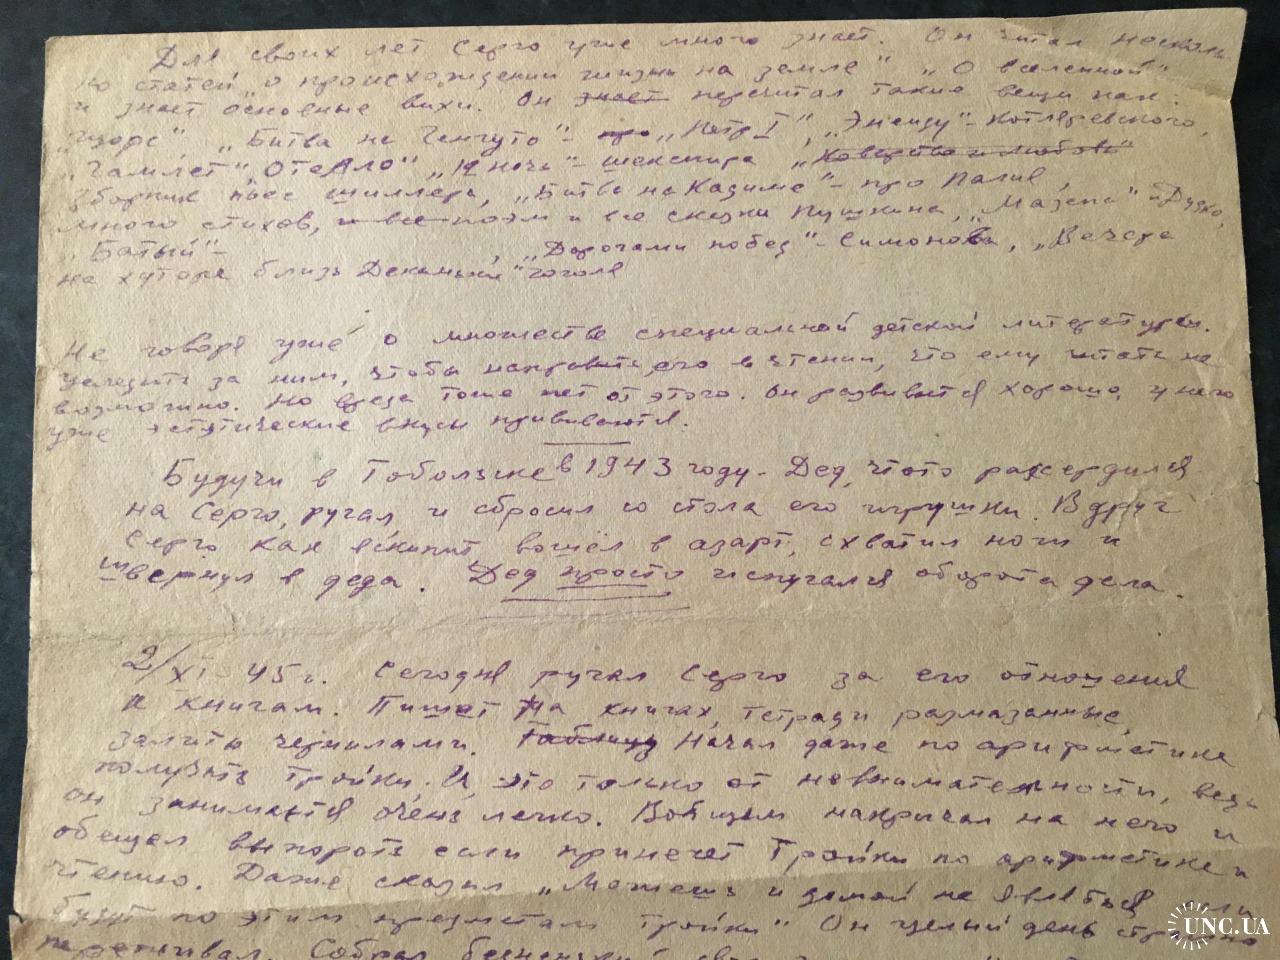 Для своих лет Серго уже много знает. Он читал несколь
ко статей „о происхождении жизни на земле" „О вселенной"
и знает основные вихи. Он знает перечитал такие вещи как:
„Щорс" „Битва на Ченчуто" – про „Петр I", „Энеиду" – Котляревского,
„Гамлет" „Отелло" „12 ночь" – шекспира „Коварство и любовь"
сборник пьес шиллера, „Битва на Кадиме" – про Палия,
много стихов, и все поэм и все сказки Пушкина, „Мазепа"
„Батый" – , „Дорогами побед" – Симонова, „Вечера
на хуторе близь Деканьки" гоголя
Не говоря уже о множестве специальной детской литературы.
за ним, чтобы направить его в чтении, что ему читать не
возможно. Но вреда тоже нет от этого. Он развивается хорошо, у него
уже эстетические вкусы прививаются.
Будучи в Тобольске в 1943 году. Дед, чтото рассердился
на Серго, ругал, и сбросил со стола его игрушки. Вдруг
Серго как вскипит, вошел в азарт, схватил ноги и
швернул в деда. Дед просто испугался оборота дела.
2/XI 45 г. Сегодня ругал Серго за его отношения
к книгам. Пишет на книгах, тетради размазанные,
залиты чернилами. Таблицу Начал даже по арифметике
получать тройки. И, это только от невнимательности, ведь
он занимается очень легко. Вобщем накричал на него и
обещал выпороть если принечет Тройки по арифметике и
чтению. Даже сказал „Можешь и домой не являться если
будут по этим предметам тройки" Он целый день страшно
переживал. Собрал
UNC.UA